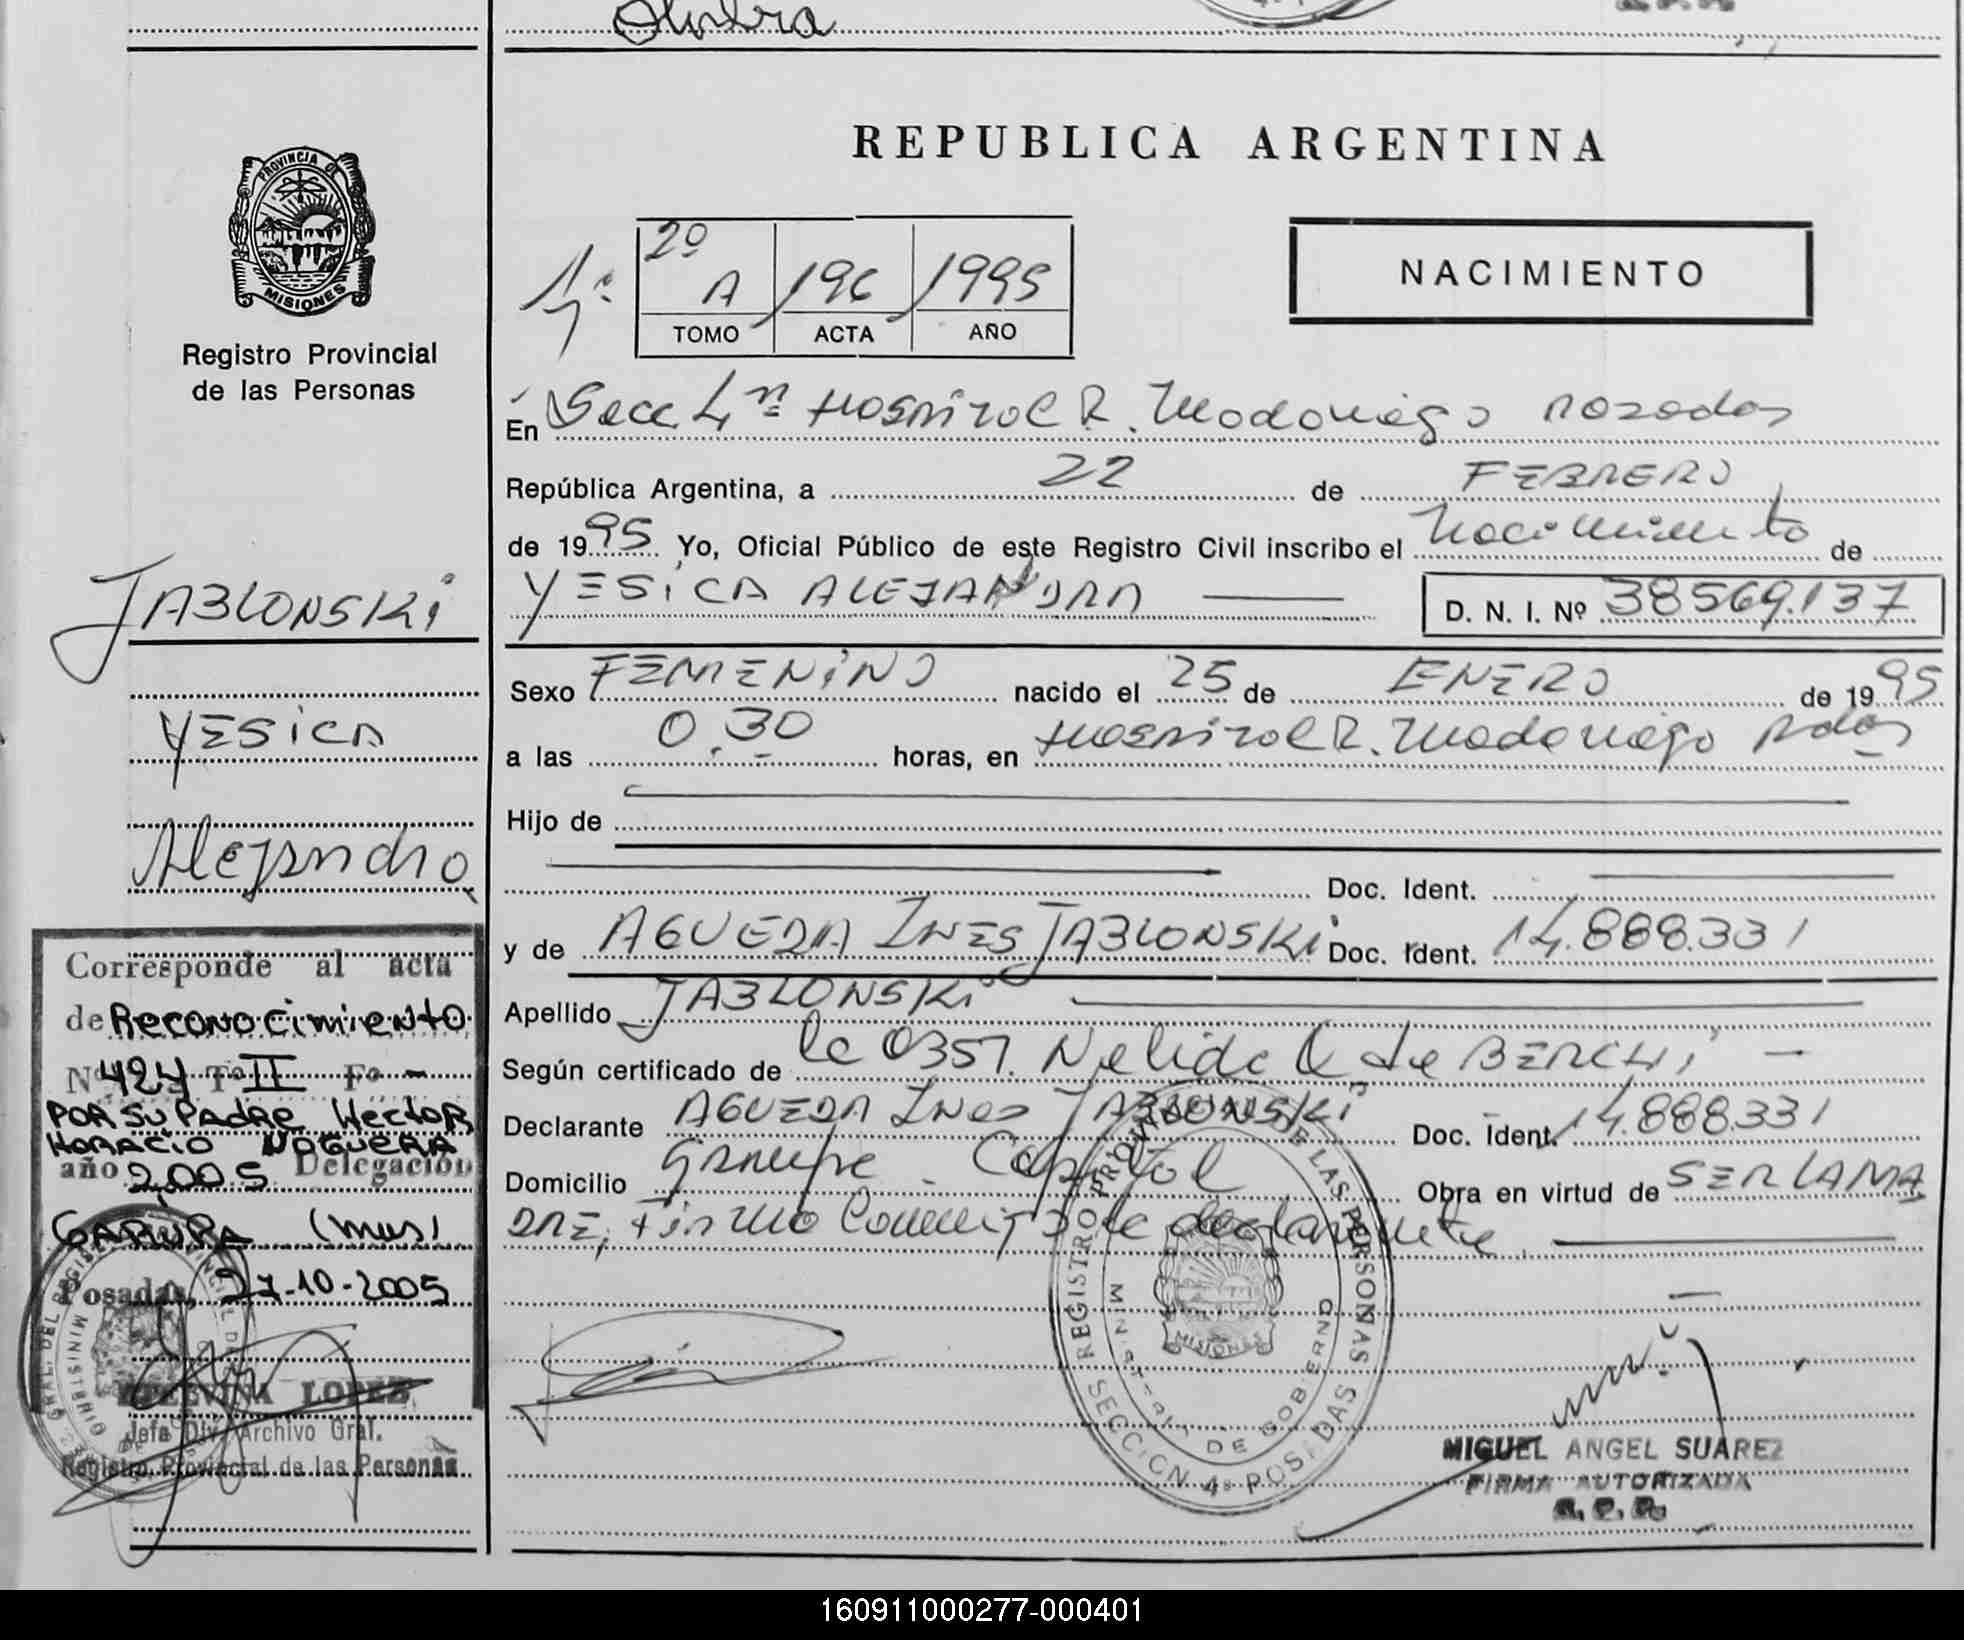 PROVINCIA DE
MISIONES
Registro Provincial
de las Personas
JABLONSKI
YESICA
Alejandra
Corresponde al acta
de Reconocimiento
Nº 424 Tº II Fº -
POR SU PADRE Hector
HORACIO NOGUERA
año 2,005 Delegación
GARUPA (mns)
Posadas, 27-10-2005
LOPEZ
Jefa Div. Archivo Gral.
Registro Provincial de las Personas
REPUBLICA ARGENTINA
1ª 2º A 196 1995
TOMO ACTA AÑO
NACIMIENTO
En Secc 4ª Hospital R. Madariaga Posadas
República Argentina, a 22 de FEBRERO
de 1995 Yo, Oficial Público de este Registro Civil inscribo el Nacimiento de
YESICA ALEJANDRA D. N. I. Nº 38569.137
Sexo FEMENINO nacido el 25 de ENERO de 1995
a las 0.30 horas, en Hospital R. Madariaga Pdas
Hijo de
Doc. Ident.
y de AGUEDA INES JABLONSKI Doc. Ident. 14.888.331
Apellido JABLONSKI
Según certificado de la 0357. Nelida de
Declarante AGUEDA Ines JABLONSKI Doc. Ident. 14.888331
Domicilio Garupa. Capital Obra en virtud de SER LA MA
DRE, Firmo conmigo la declarante
REGISTRO PROVINCIAL DE LAS PERSONAS
MINISTERIO DE GOBIERNO
MISIONES
SECCION 4ª POSADAS
MIGUEL ANGEL SUAREZ
FIRMA AUTORIZADA
R. P. P.
160911000277-000401